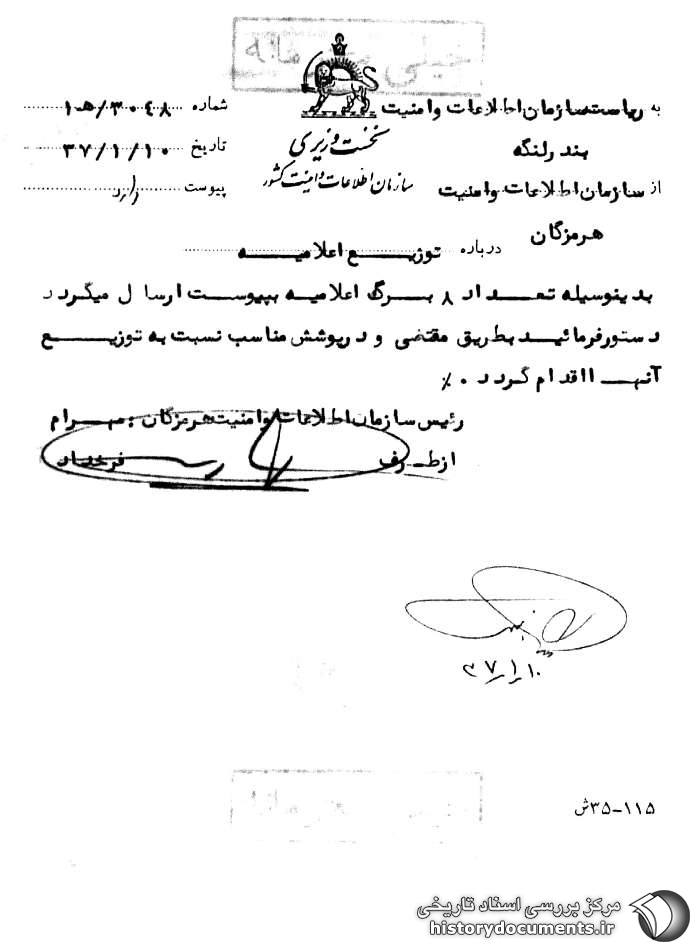 خیلی محرمانه
به ریاست سازمان اطلاعات و امنیت
بندرلنگه
از سازمان اطلاعات و امنیت
هرمزگان
نخست وزیری
سازمان اطلاعات و امنیت کشور
شماره ۳۰۴۸/ه‍ ۱
تاریخ ۳۷/۱/۱۰
پیوست دارد
درباره توزیع اعلامیه
بدینوسیله تعداد ۸ برگ اعلامیه بپیوست ارسال میگردد
دستورفرمائید بطریق مقتضی و درپوشش مناسب نسبت به توزیع
آنها اقدام گردد ٪
رئیس سازمان اطلاعات و امنیت هرمزگان : مهرام
ازطرف
۳۷/۱/۱۰
۳۵-۱۱۵ش
مرکز بررسی اسناد تاریخی
historydocuments.ir